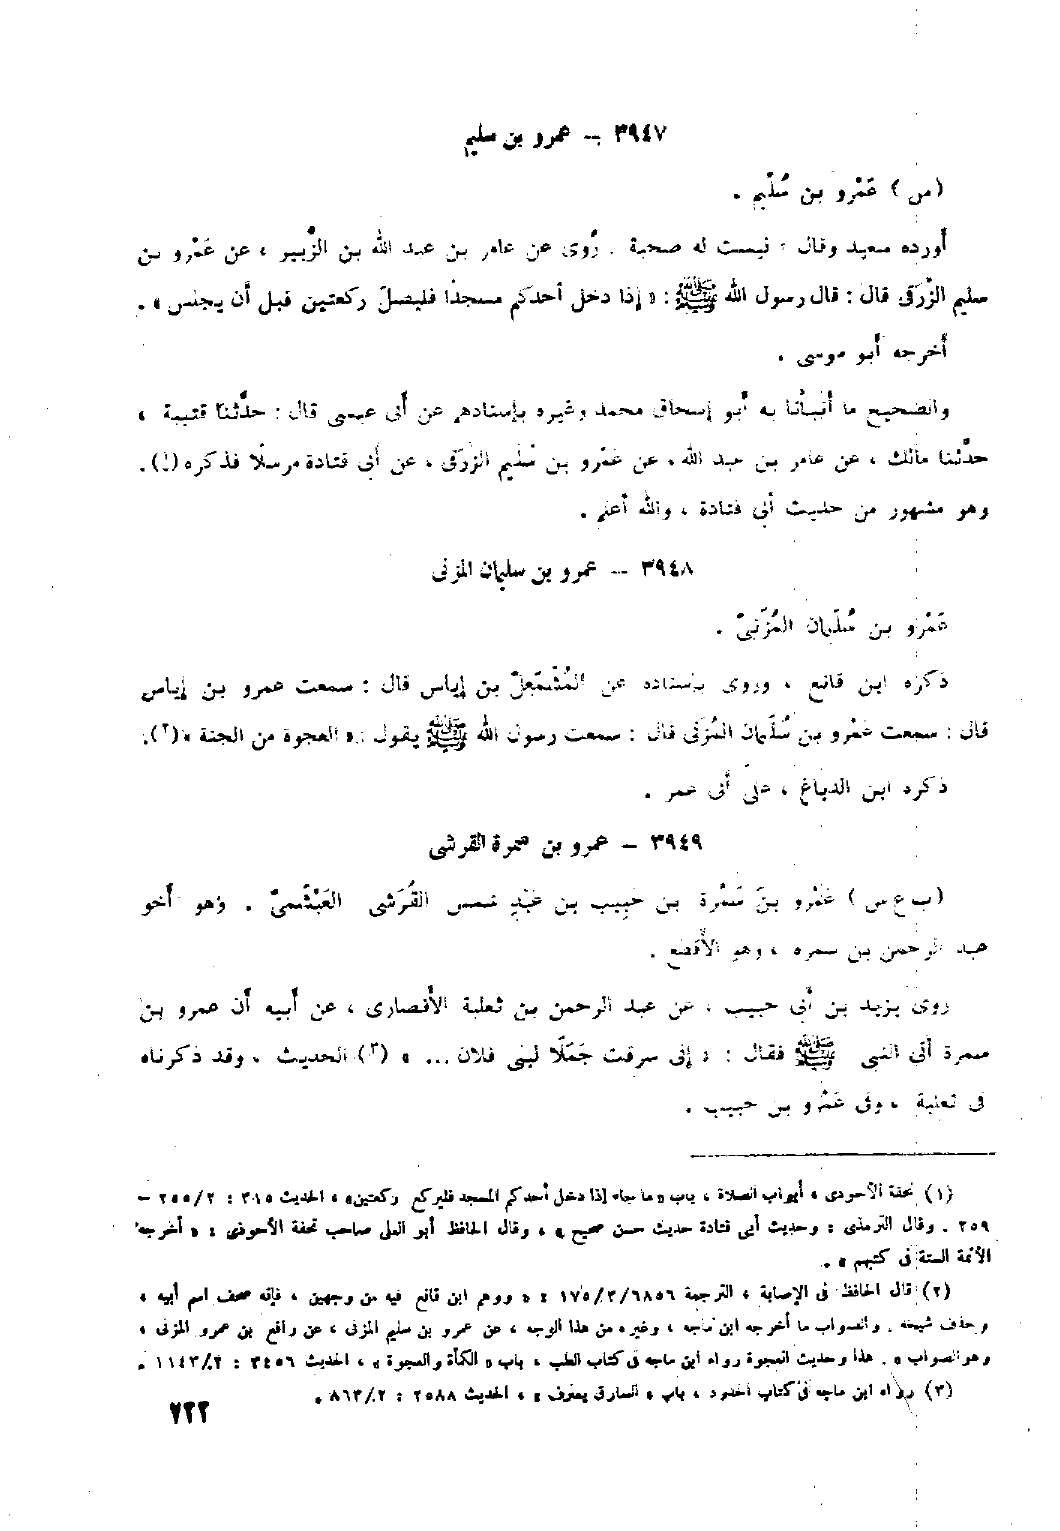 ٣٩٤٧ – عمرو بن سليم
(س) عَمْرو بن سُلَيم .
أورده سعيد وقال : ليست له صحبة . رُوى عن عامر بن عبد الله بن الزُّبير ، عن عَمْرو بن
سليم الزُّرَقى قال : قال رسول الله ﷺ : « إذا دخل أحدكم مسجدًا فليصلّ ركعتين قبل أن يجلس » .
أخرجه أبو موسى .
والصحيح ما أنبأنا به أبو إسحاق محمد وغيره بإسنادهم عن أبى عيسى قال : حدَّثنا قتيبة ،
حدَّثنا مالك ، عن عامر بن عبد الله ، عن عَمْرو بن سُليم الزرَقى ، عن أبى قتادة مرسلًا فذكره (١) .
وهو مشهور من حديث أبى قتادة ، والله أعلم .
٣٩٤٨ – عمرو بن سليمان المزنى
عَمْرو بن سُلَيمان المُزَنىّ .
ذكره ابن قانع ، وروى بإسناده عن المُشْمَعِلّ بن إياس قال : سمعت عمرو بن إياس
قال : سمعت عَمْرو بن سُلَيمان المُزَنى قال : سمعت رسول الله ﷺ يقول : « العجوة من الجنة » (٢) .
ذكره ابن الدباغ ، على أبى عمر .
٣٩٤٩ – عمرو بن سمرة القرشى
(ب ع س) عَمْرو بنَ سَمُرة بن حَبِيب بن عَبْدِ شمس القُرَشى العَبْشَمىّ . وهو أخو
عبد الرحمن بن سمره ، وهو الأقطع .
روى يزيد بن أبى حبيب ، عن عبد الرحمن بن ثعلبة الأنصارى ، عن أبيه أن عمرو بن
سمرة أتى النبى ﷺ فقال : « إنى سرقت جَمَلًا لبنى فلان ... » (٣) الحديث ، وقد ذكرناه
فى ثعلبة ، وفى عَمْرو بن حبيب .
(١) تحفة الأحوذى ، أبواب الصلاة ، باب « ما جاء إذا دخل أحدكم المسجد فليركع ركعتين» ، الحديث ٣١٥ : ٢/ ٢٥٥ –
٢٥٩ . وقال الترمذى : وحديث أبى قتادة حديث حسن صحيح » ، وقال الحافظ أبو العلى صاحب تحفة الأحوذى : « أخرجه
الأئمة الستة فى كتبهم » .
(٢) قال الحافظ فى الإصابة ، الترجمة ٦٨٥٦ /٣/ ١٧٥ : « ووهم ابن قانع فيه من وجهين ، فإنه صحف اسم أبيه ،
وحذف شيخه . والصواب ما أخرجه ابن ماجه ، وغيره من هذا الوجه ، عن عمرو بن سليم المزنى ، عن رافع بن عمرو المزنى ،
وهو الصواب » . هذا وحديث العجوة رواه ابن ماجه فى كتاب الطب ، باب « الكمأة والعجوة » ، الحديث ٣٤٥٦ : ٢/ ١١٤٣ .
(٣) رواه ابن ماجه فى كتاب الحدود ، باب « السارق يعترف » ، الحديث ٢٥٨٨ : ٢/ ٨٦٣ .
٧٢٢